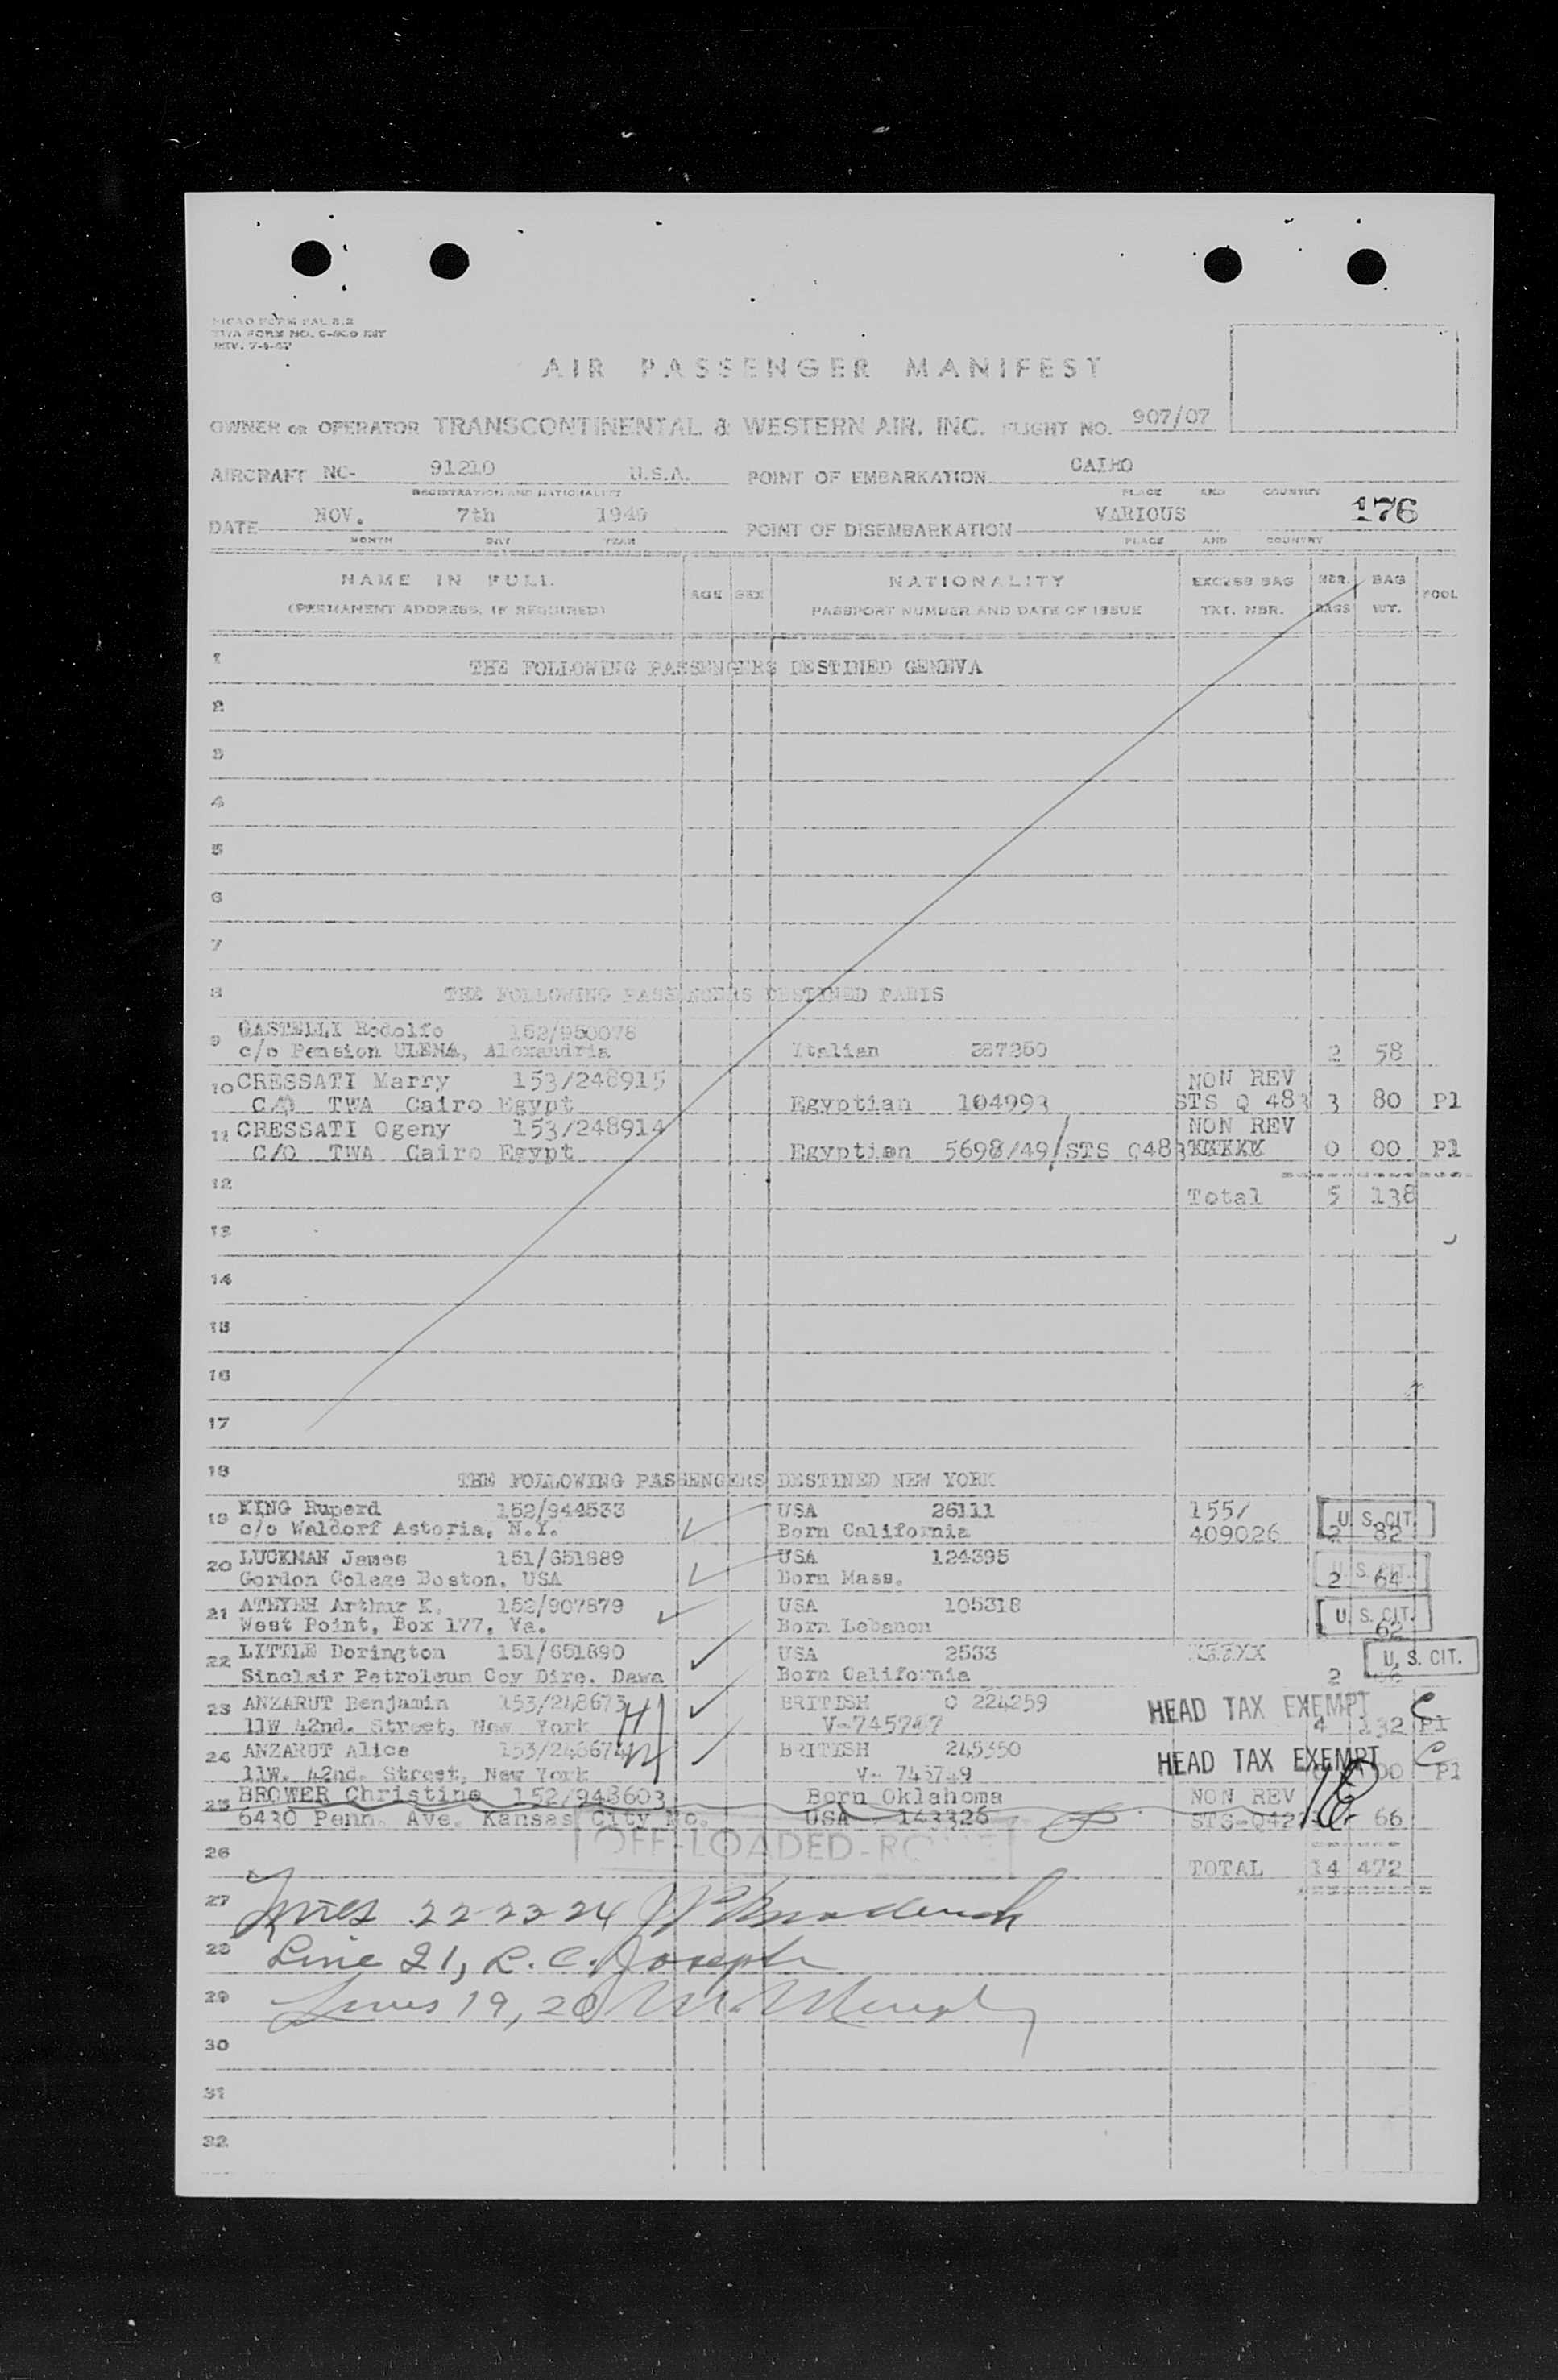 MICAO FORM PAL 2.2
TWA FORM NO. C-800 INT
REV. 7-1-47
AIR PASSENGER MANIFEST
OWNER OR OPERATOR TRANSCONTINENTAL & WESTERN AIR, INC. FLIGHT NO. 907/07
AIRCRAFT NC- 91210 U.S.A. POINT OF EMBARKATION CAIRO
REGISTRATION AND NATIONALITY PLACE AND COUNTRY
176
DATE NOV. 7th 1949 POINT OF DISEMBARKATION VARIOUS
MONTH DAY YEAR PLACE AND COUNTRY
NAME IN FULL AGE SEX NATIONALITY EXCESS BAG NBR. BAG POOL
(PERMANENT ADDRESS, IF REQUIRED) PASSPORT NUMBER AND DATE OF ISSUE TKT. NBR. BAGS WT.
1 THE FOLLOWING PASSENGERS DESTINED GENEVA
2
3
4
5
6
7
8 THE FOLLOWING PASSENGERS DESTINED PARIS
9 CASTELLI Rodolfo 152/950078
c/o Pension ULEMA, Alexandria Italian 287250 2 58
10 CRESSATI Marry 153/248915 NON REV
C/O TWA Cairo Egypt Egyptian 104993 STS Q 483 3 80 Pl
11 CRESSATI Ogeny 153/248914 NON REV
C/O TWA Cairo Egypt Egyptian 5698/49/STS Q483 XXXXX 0 00 Pl
12 Total 5 138
13
14
15
16
17
18 THE FOLLOWING PASSENGERS DESTINED NEW YORK
19 KING Ruperd 152/944533 USA 26111 155/ U. S. CIT.
c/o Waldorf Astoria, N.Y. Born California 409026 2 82
20 LUCKMAN James 151/651889 USA 124395 U. S. CIT.
Gordon Colege Boston, USA Born Mass. 2 64
21 ATEYEH Arthur K. 152/907879 USA 105318 U. S. CIT.
West Point, Box 177, Va. Born Lebanon 62
22 LITTLE Dorington 151/651890 USA 2533 U. S. CIT.
Sinclair Petroleum Coy Dire. Dawa Born California 2
23 ANZARUT Benjamin 153/248673 BRITISH C 224259 HEAD TAX EXEMPT C
11W 42nd. Street, New York V-745747 4 132 Pl
24 ANZARUT Alice 153/248674 BRITISH 245350 HEAD TAX EXEMPT C
11W. 42nd. Street, New York V- 745749 00 Pl
25 BROWER Christine 152/948603 Born Oklahoma NON REV
6430 Penn. Ave. Kansas City Mo. USA 143326 STS-Q42 66
OFF-LOADED-ROME
26 TOTAL 14 472
27 Lines 22-23-24
28 Line 21, L. C. Joseph
29 Lines 19, 20 M. Murphy
30
31
32